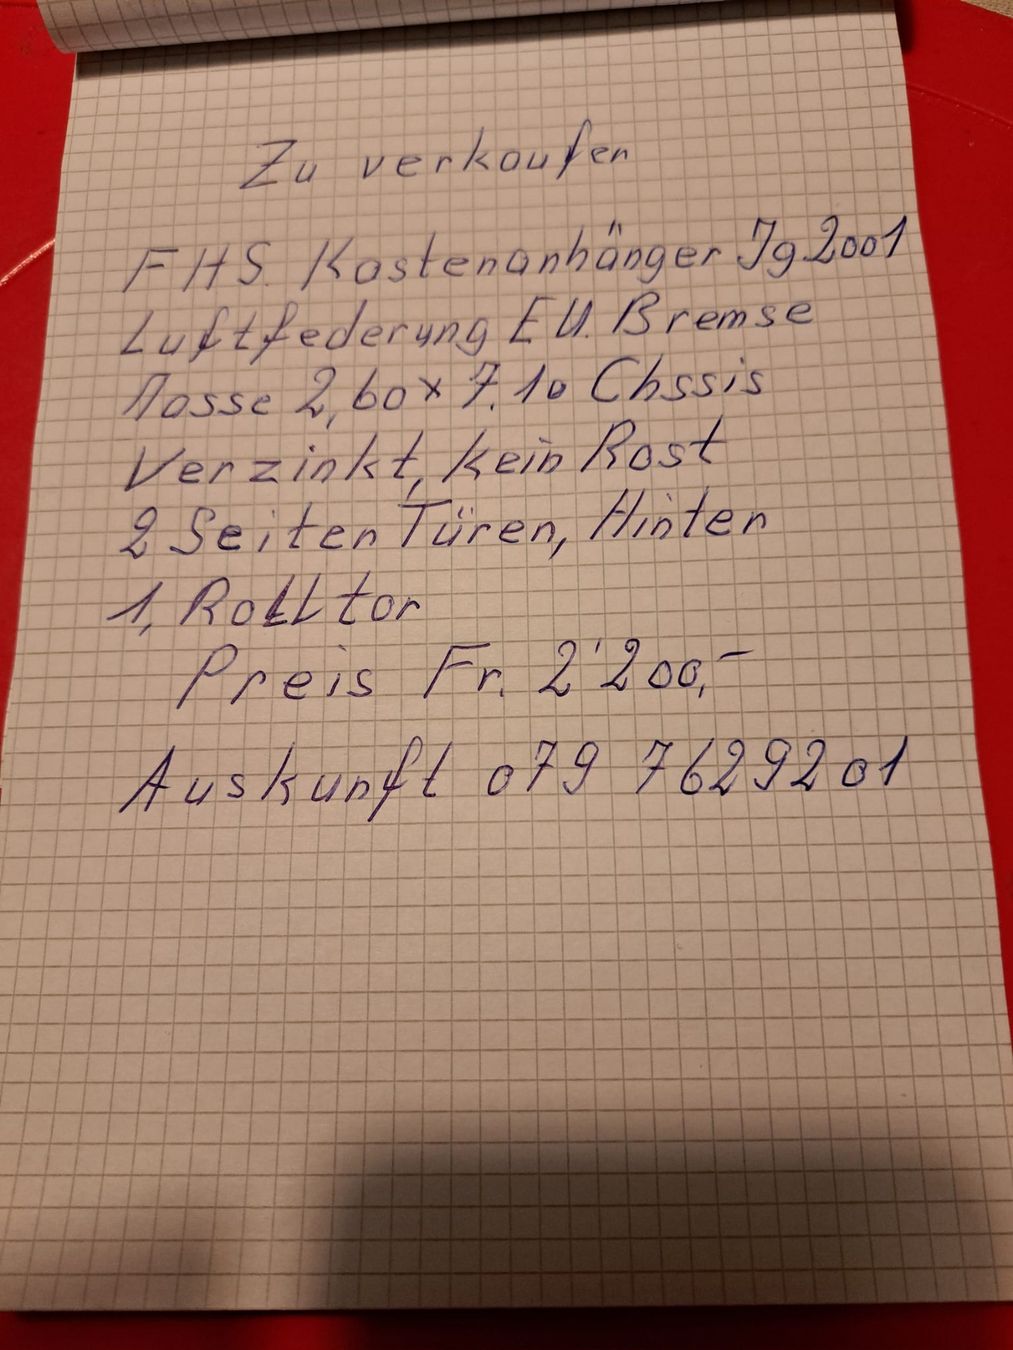 Zu verkaufen
FHS. Kastenanhänger Jg 2001
Luftfederung EU. Bremse
Masse 2,60 x 7.10 Chssis
Verzinkt, kein Rost
2 Seiten Türen, Hinten
1, Rolltor
Preis Fr. 2'200,-
Auskunft 079 7629201